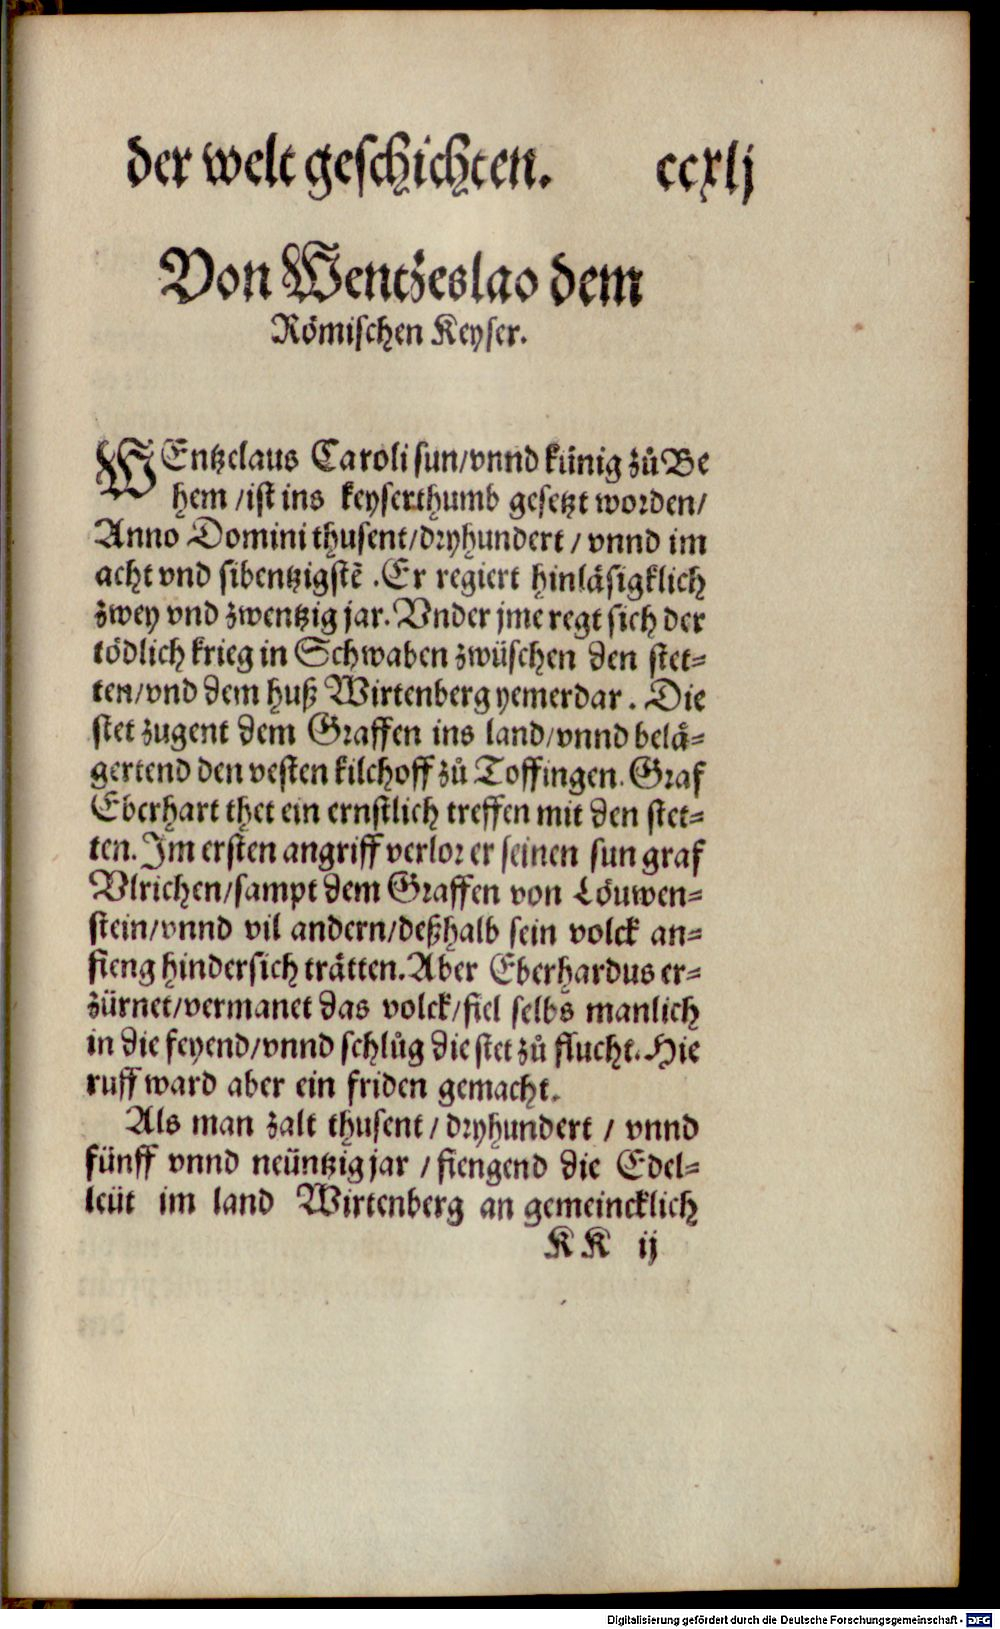 der welt geschichten. ccxlj
Von Wentzeslao dem
Römischen Keyser.
WEntzelaus Caroli sun/vnnd künig zuͦ Be
hem /ist ins keyserthumb gesetzt worden/
Anno Domini thusent/dryhundert / vnnd im
acht vnd sibentzigstẽ .Er regiert hinläsigklich
zwey vnd zwentzig jar. Vnder jme regt sich der
tödlich krieg in Schwaben zwüschen den stet-
ten/vnd dem huß Wirtenberg yemerdar . Die
stet zugent dem Graffen ins land/vnnd belä-
gertend den vesten kilchoff zuͦ Toffingen. Graf
Eberhart thet ein ernstlich treffen mit den stet-
ten. Im ersten angriff verlor er seinen sun graf
Vlrichen/sampt dem Graffen von Löuwen-
stein/vnnd vil andern/deßhalb sein volck an-
fieng hindersich trätten. Aber Eberhardus er-
zürnet/vermanet das volck/fiel selbs manlich
in die feyend/vnnd schluͦg die stet zuͦ flucht. Hie
ruff ward aber ein friden gemacht.
Als man zalt thusent / dryhundert / vnnd
fünff vnnd neüntzig jar / fiengend die Edel-
leüt im land Wirtenberg an gemeincklich
KK ij
Digitalisierung gefördert durch die Deutsche Forschungsgemeinschaft - DFG